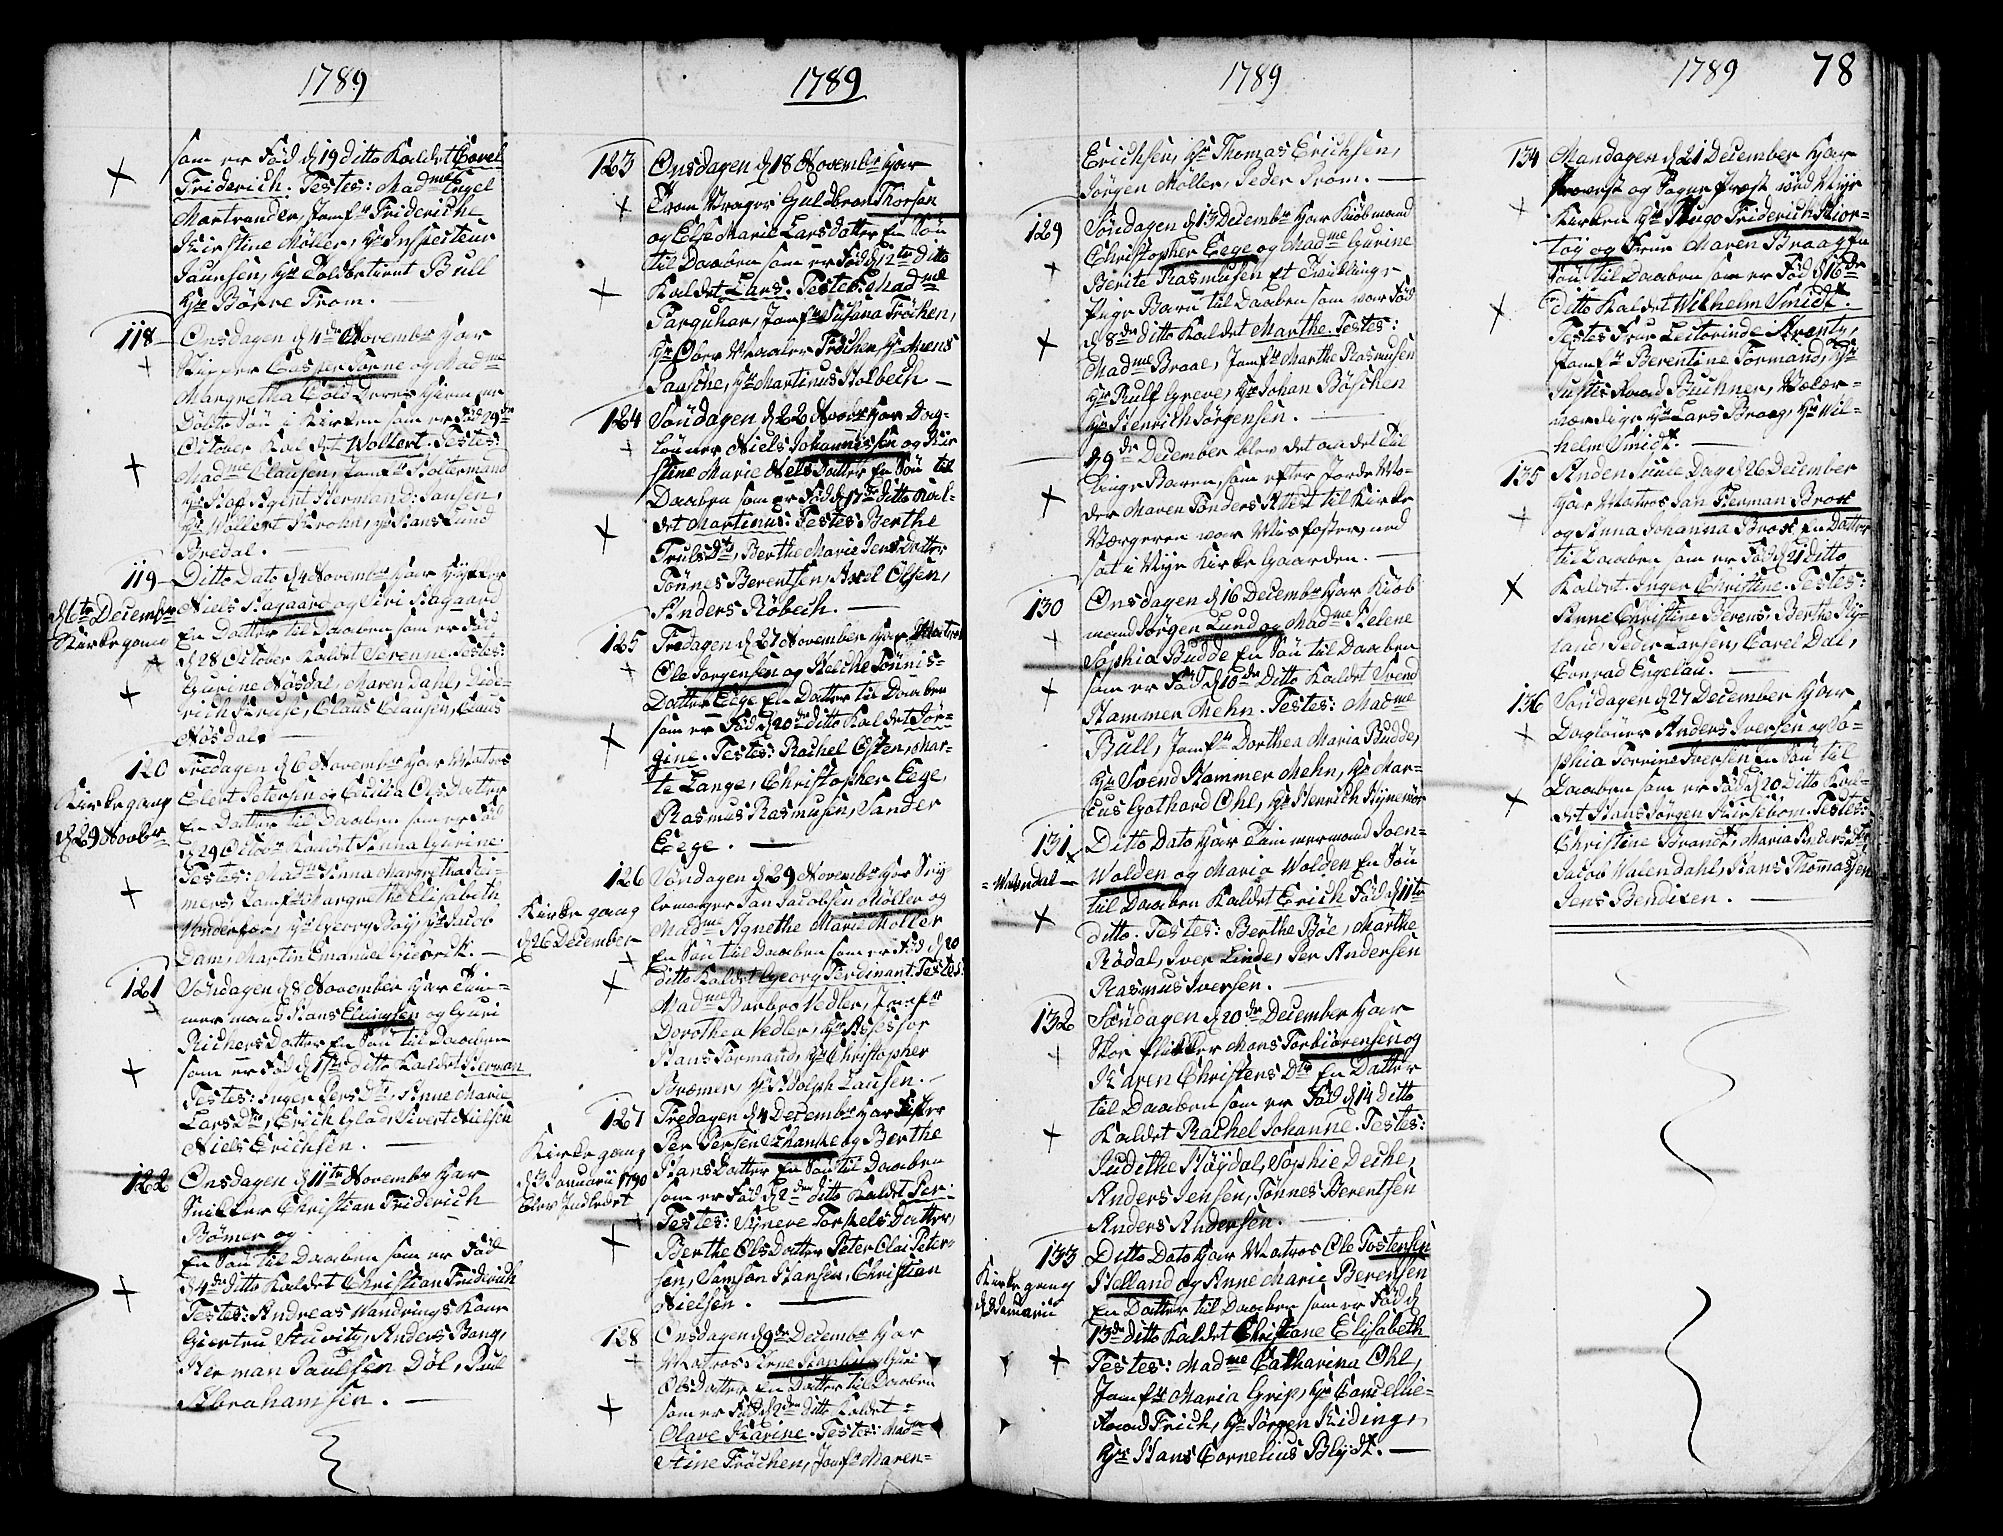 1789
som er Fød d 19 ditto Kaldet Carel
Friderich. Testes: Madme Engel
Martrander, Jomfr Frideriche
Kirstine Möller, Hr Inspecteur
Paulsen, Hr Toldbetient Bull
Hr Börre From.
118 Onsdagen d 4de November har
Casper Tonne og Madme
Margretha
Döbte Søn i Kirken som er Fød d 9de
October Kaldet Wollert. Testes:
Madme Clausen, Jomfr Holtermand
Hr Agent Herman D: Jansen,
Hr Wollert Krohn, Hr Hans Lund
Bredal.
119 Ditto Dato d 4 November har
d 6te Decembr
Kirkegang
Niels Hagaard og Siri Hagaard
En Datter til Daaben som er Fød
d 28 October Kaldet Serenne. Testes:
Gurine Nösdal, Maren Dahl, Didrich
Kruse, Claus Clausen, Claus
Nösdal.
120 Fredagen d 6 November har Matros
Kirkegang
d 29 Novbr
Elert Petersen og Cicilia Ols Datter
En Datter til Daaben som er Fød
d 29 Octobr Kaldet Anna Gurine.
Testes: Madme Anna Margretha Reimers,
Jomfr Margrethe Elisabeth
Vonderfor, Hr Georg Böy, Hr Jacob
Dam, Martin Emanuel Giörck.
121 Söndagen d 8 November har Timmermand
Hans Elwigsen og Guri
Richers Datter En Søn til Daaben
som er Fød d 1ste ditto Kaldet Herman
Testes: Inger Pers Dtr, Anne Marie
Lars Dtr, Erich Glad, Sivert Nielsen
Niels Erichsen.
122 Onsdagen d 11te November har
Snikker Christian Friderich
Bömer og
En Søn til Daaben som er Fød
d 4de ditto Kaldet Christian Friderich
Testes: Andreas Wandrings Kone
Giertru Sturitz, Anders Bang,
Herman Paulsen Döl, Paul
Abrahamsen.
1789
123 Onsdagen d 18 November har
Guldbran Thorsen
og Else Marie Lars datter En Søn
til Daaben som er Fød d 12te ditto
Kaldet Lars. Testes: Madme
Farquhar, Jomfr Susana Fröchen,
Hr Ober Fröchen, Hr Mens
Paasche, Hr Martinus Holbech
124 Söndagen d 22 Novbr har Daglönner
Niels Johannissen og Kirstine
Marie Nels Datter En Søn til
Daaben som er Fød d 17de ditto Kaldet
Martinus. Testes: Berthe
Truls Dtr, Berthe Marie Jens Datter
Tönnes Berentsen, Axel Olsen,
Anders Röbech.
125 Fredagen d 27 November har Matros
Ole Jorgensen og Tönnis-
Datter Eege En Datter til Daaben
som er Fød d 20de ditto Kaldet Jörgine.
Testes: Rachel Olsen, Marte
Lange, Christopher Eege,
Rasmus Rasmusen, Sander
Eege.
126 Söndagen d 29 November har
Kirkegang
d 26 December
Jan Jacobsen Möller og
Madme Agnethe Marie Möller
En Søn til Daaben som er Fød d 20
ditto Kaldet Georg Ferdinant. Testes:
Madme Barbro Vedler, Jomfr
Dorothea Vedler, Hr Assessor
Hans Formand, Hr Christopher
Bræmer, Hr Adolph Lausen.
127 Fredagen d 4 Decembr har Fisker
Kirkegang
d 3 Januarii 1790
blev Indledet
Per Persen Schanke og Berthe
Hans Datter En Søn til Daaben
som er Fød d 2den ditto Kaldet Per.
Testes: Synneve Torkels Datter,
Berthe Ols Datter, Peter Olai Petersen,
Samson Hansen, Christian
Nielsen.
128 Onsdagen d 9de Decembr har
Matros Arne og Guri
Ols Datter En Datter til Daaben
som er Fød d 2den ditto Kaldet
Olave Karine. Testes: Madme
Stine Fröchen, Jomfr Maren
1789
Erichsen, Hr Thomas Erichsen,
Jörgen Möller, Peder From.
129 Söndagen d 13 Decembr har Kiöbmand
Christopher Eege og Madme Gurine
Berite Rasmusen Et Twillings
Pige Barn til Daaben som var Fød
d 8de ditto Kaldet Marthe. Testes:
Madme Braae, Jomfr Marthe Rasmusen
Hr Rulf Greve, Hr Johan Böschen
Hr Henrich Jörgensen.
d 9de December blev det andet Twillinge
Barn, som efter Jordemoder
Maren Tönders Attest til Kirke
Wærgeren var Misfoster, ned
sat i Nye Kirke Gaarden.
130 Onsdagen d 16 December har Kiöbmand
Jörgen Lund og Madme Helene
Sophia Budde En Søn til Daaben
som er Fød d 10de ditto Kaldet Svend
Hammer Mehn. Testes: Madme
Bull, Jomfr Dorthea Maria Budde,
Hr Svend Hammer Mehn, Hr Marcus
Gothard Ohl, Hr Henrich Kynemör
131 Ditto Dato har Timmermand Iven
= Walendal Wolden og Maria Wolden En Søn
til Daaben Kaldet Erich Fød d 11te
ditto. Testes: Berthe Böe, Marthe
Rödal, Iver Linde, Per Andersen
Rasmus Iversen.
132 Söndagen d 20de December har
Skoe flikker Mons Torbiörensen og
Karen Christens Dtr En Datter
til Daaben som er Fød d 14 ditto
Kaldet Rachel Johanne. Testes:
Judithe Höydal, Sophie Deche,
Anders Jensen, Tönnes Berentsen
Anders Andersen.
133 Ditto Dato har Matros Ole Tostensen
Kirkegang
d Januarii
Helland og Anne Marie Berensen
En Datter til Daaben som er Fød d
13de ditto Kaldet Christiane Elisabeth
Testes: Madme Catharina Ohl,
Jomfr Maria Grip, Hr Cancellie-
Raad Frich, Hr Jörgen Kiding,
Hr Hans Cornelius Blydt.
1789
78
134 Mandagen d 21 December har
Provst og Sogne Præst ved Nye
Kirken Hr Hugo Friderich Hiortöy
og Frue Maren Braag En
Søn til Daaben som er Fød d 16de
ditto Kaldet Wilhelm Smidt.
Testes Frue Lectorinde Arentz,
Jomfr Berentine Formand, Hr
Justis Raad Buchner, Velærværdige
Hr Lars Braag, Hr Wilhelm
Smidt.
135 Anden Juule Dag d 26 December
har Matros Jan Herman Brose
og Anna Johanna Brose En Datter
til Daaben som er Fød d 21 ditto
Kaldet Inger Christine. Testes:
Anne Christine Berens, Berthe Nyland,
Peder Larsen, Carel Dal,
Conrad Engelau.
136 Söndagen d 27 December har
Daglöner Anders Iversen og Sophia
Torrine Iversen En Søn til
Daaben som er Fød d 20 ditto Kaldet
Hans Jörgen Kirsebom. Testes:
Christine Brandt, Maria Anders Dtr
Jacob Walendahl, Hans Thomassen
Jens Bendixen.